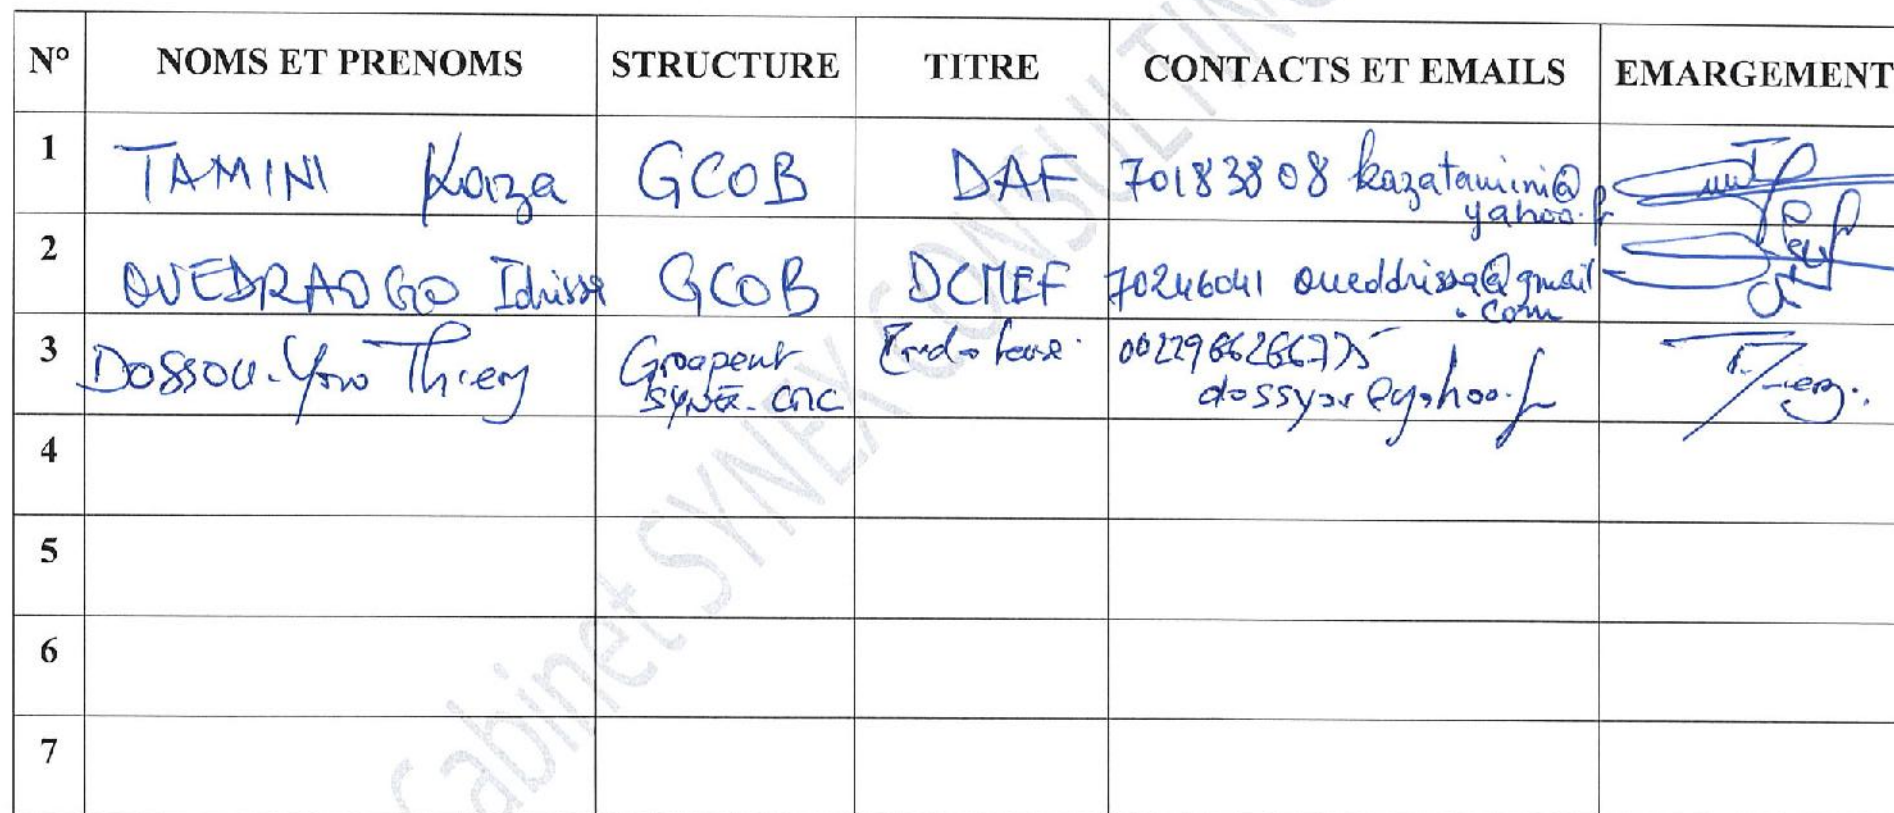 N° NOMS ET PRENOMS STRUCTURE TITRE CONTACTS ET EMAILS EMARGEMENT
1 TAMINI Kaza GCOB DAF 70183808 kazatamini@
yahoo.fr
2 OUEDRAOGO Idrissa GCOB DCMEF 70246041 oueddrissa@gmail
.com
3 Dossou-Yovo Thierry Groupent
dossyov@yahoo.fr
4
5
6
7
Cabinet SYNEX CONSULTING